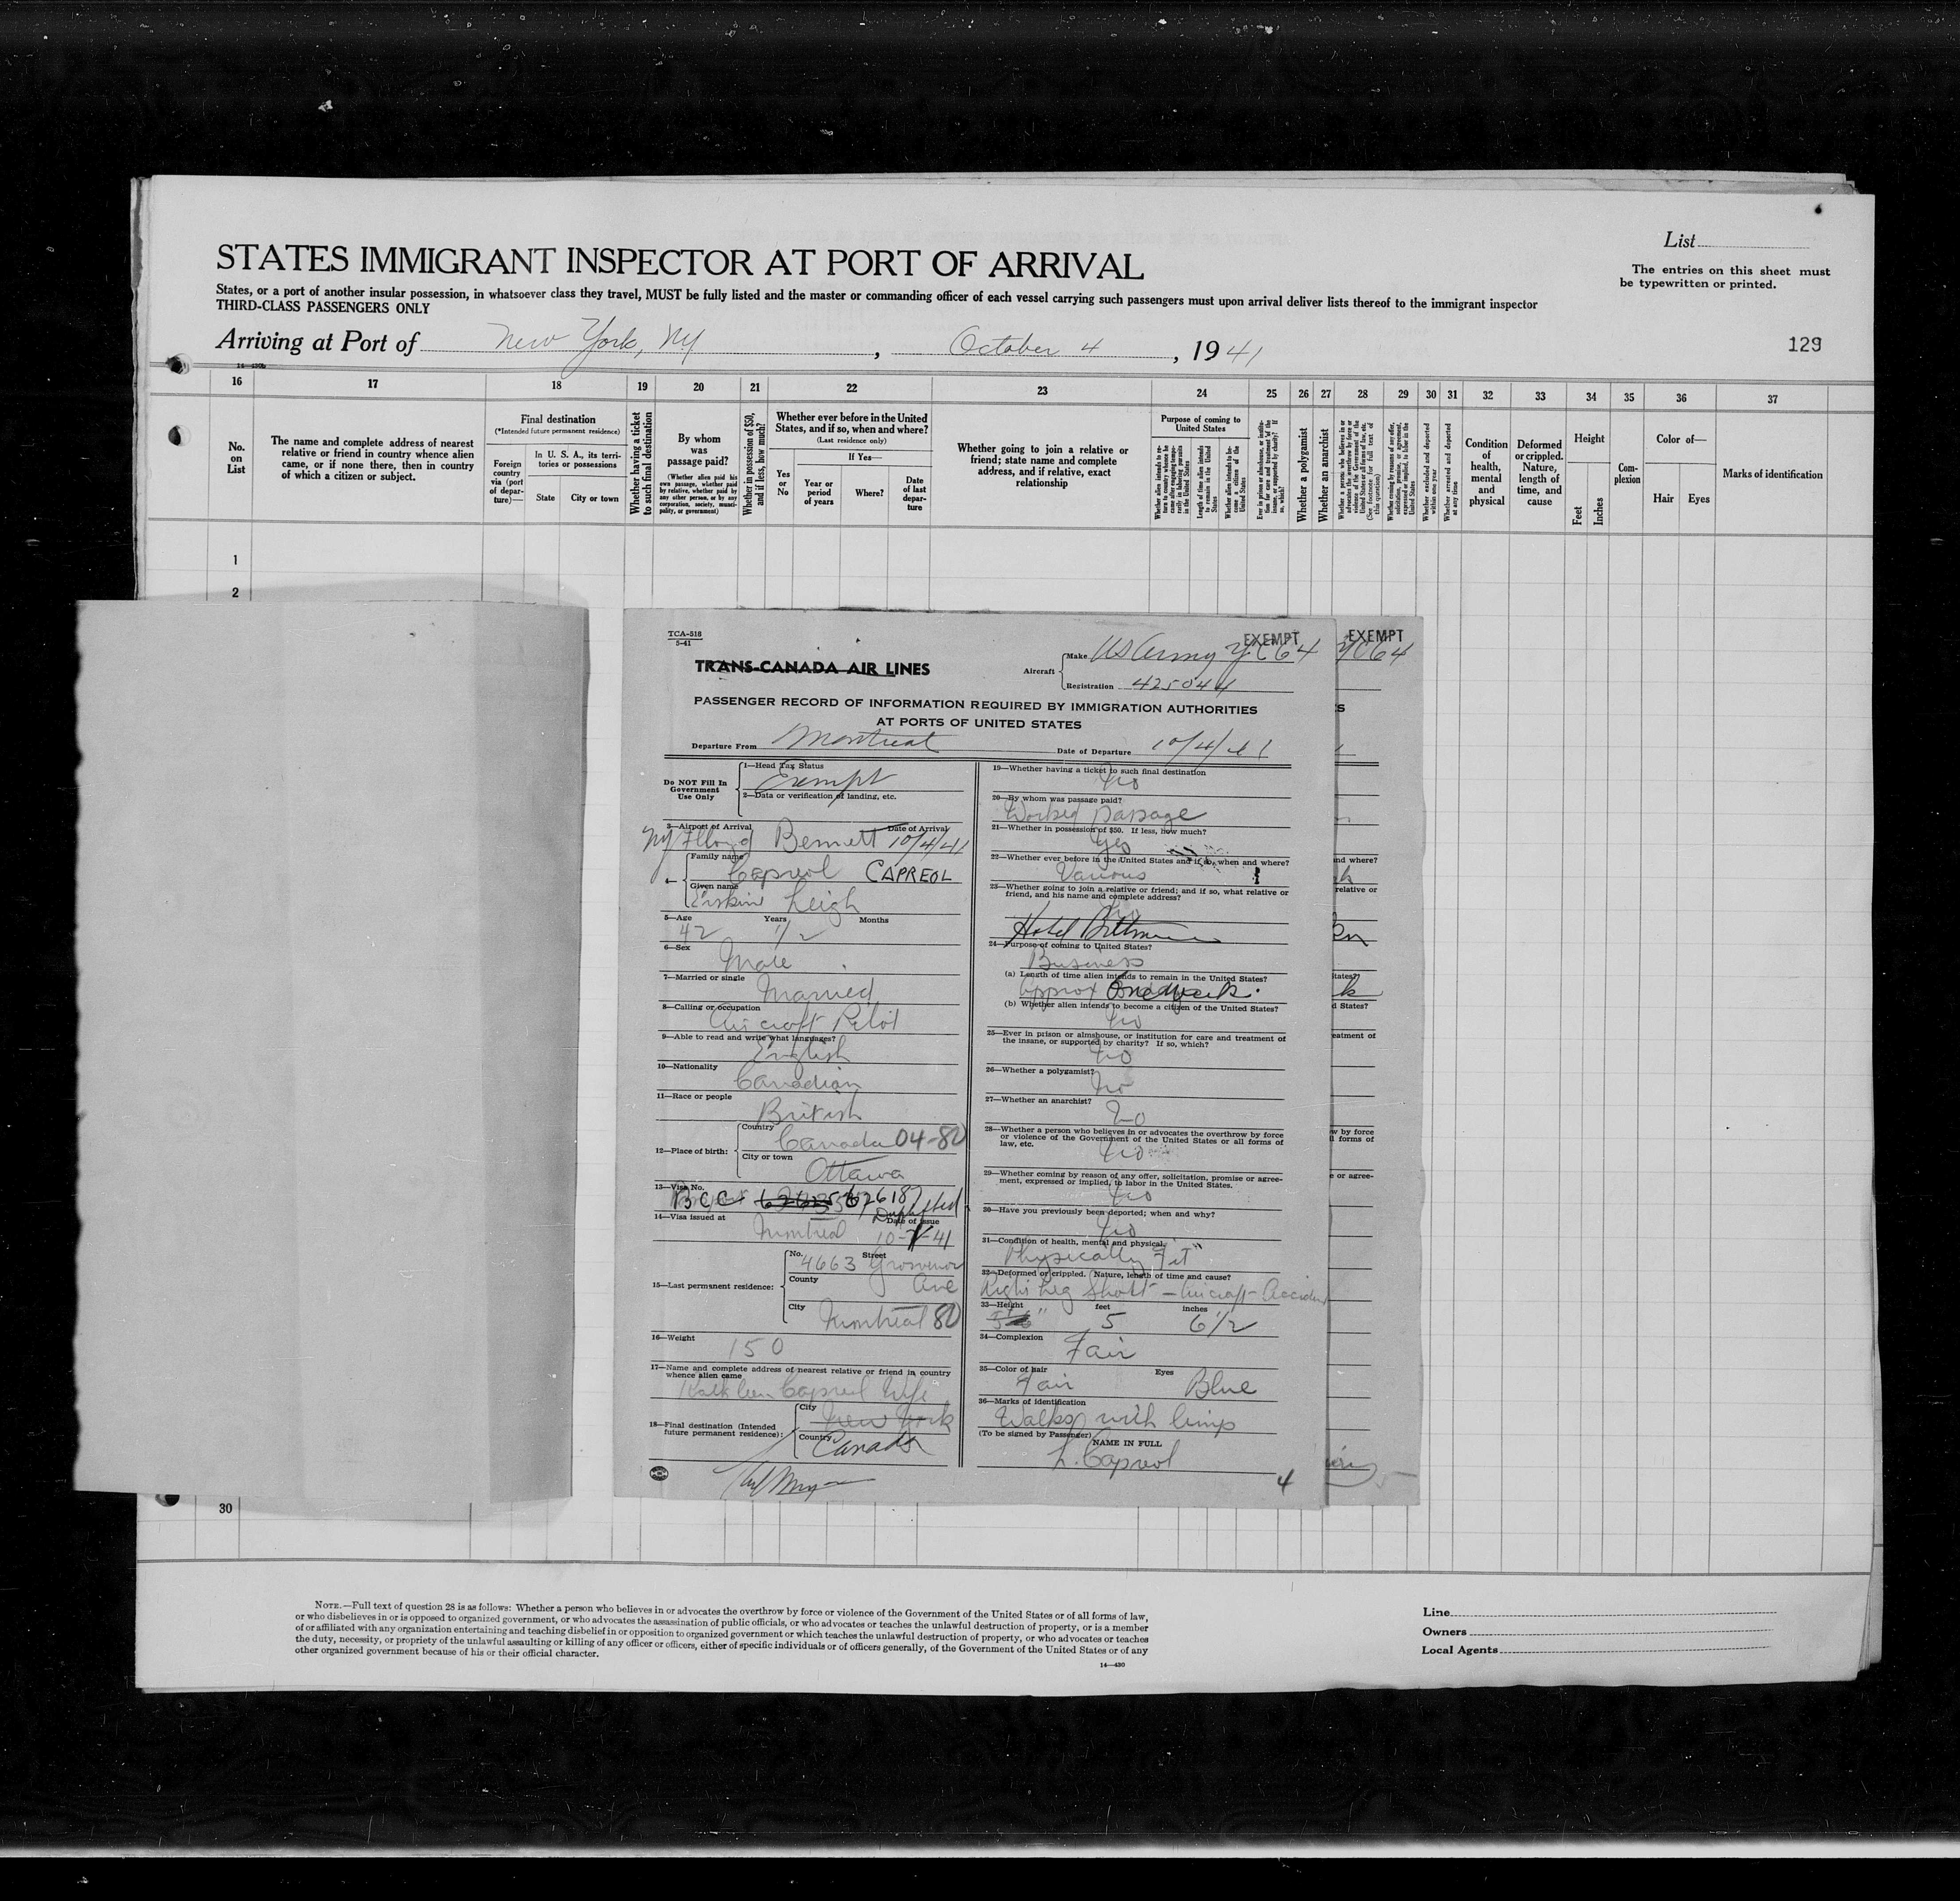 STATES IMMIGRANT INSPECTOR AT PORT OF ARRIVAL
List
The entries on this sheet must
be typewritten or printed.
States, or a port of another insular possession, in whatsoever class they travel, MUST be fully listed and the master or commanding officer of each vessel carrying such passengers must upon arrival deliver lists thereof to the immigrant inspector
THIRD-CLASS PASSENGERS ONLY
Arriving at Port of New York, NY, October 4, 1941
129
16 17 18 19 20 21 22 23 24 25 26 27 28 29 30 31 32 33 34 35 36 37
No.
on
List
The name and complete address of nearest
relative or friend in country whence alien
came, or if none there, then in country
of which a citizen or subject.
Final destination
(*Intended future permanent residence)
Foreign
country
via (port
of depar-
ture)—
In U. S. A., its terri-
tories or possessions
State
City or town
Whether having a ticket
to such final destination
By whom
was
passage paid?
(Whether alien paid his
own passage, whether paid
by relative, whether paid by
any other person, or by any
corporation, society, munici-
pality, or government)
Whether in possession of $50,
and if less, how much?
Whether ever before in the United
States, and if so, when and where?
(Last residence only)
Yes
or
No
If Yes—
Year or
period
of years
Where?
Date
of last
depar-
ture
Whether going to join a relative or
friend; state name and complete
address, and if relative, exact
relationship
Purpose of coming to
United States
Whether a polygamist
Whether an anarchist
Whether excluded and deported
within one year
Whether arrested and deported
at any time
Condition
of
health,
mental
and
physical
Deformed
or crippled.
Nature,
length of
time, and
cause
Height
Feet
Inches
Com-
plexion
Color of—
Hair
Eyes
Marks of identification
1
2
30
TCA-518
5-41
TRANS-CANADA AIR LINES
Aircraft
Make US Army YC64
EXEMPT
Registration 425044
EXEMPT
YC64
PASSENGER RECORD OF INFORMATION REQUIRED BY IMMIGRATION AUTHORITIES
AT PORTS OF UNITED STATES
Departure From Montreal
Date of Departure 10/4/41
Do NOT Fill In
Government
Use Only
1—Head Tax Status
Exempt
2—Data or verification of landing, etc.
3—Airport of Arrival
Date of Arrival
NY Floyd Bennett 10/4/41
4—
Family name
Capreol CAPREOL
Given name
Erskine Leigh
5—Age Years Months
42 1/2
6—Sex
Male
7—Married or single
Married
8—Calling or occupation
Aircraft Pilot
9—Able to read and write what languages?
English
10—Nationality
Canadian
11—Race or people
British
12—Place of birth:
Country
Canada 04-80
City or town
Ottawa
13—Visa No.
BCC 626187
14—Visa issued at
Date of issue
Montreal 10-7-41
15—Last permanent residence:
No. Street
4663 Grosvenor
County
Ave
City
Montreal 80
16—Weight
150
17—Name and complete address of nearest relative or friend in country
whence alien came
Kathleen Capreol Wife
18—Final destination (Intended
future permanent residence):
City
New York
Country
Canada
19—Whether having a ticket to such final destination
No
20—By whom was passage paid?
Worked passage
21—Whether in possession of $50. If less, how much?
Yes
22—Whether ever before in the United States and if so, when and where?
Various
23—Whether going to join a relative or friend; and if so, what relative or
friend, and his name and complete address?
No
Hotel Biltmore
24—Purpose of coming to United States?
Business
(a) Length of time alien intends to remain in the United States?
Approx One week.
(b) Whether alien intends to become a citizen of the United States?
No
25—Ever in prison or almshouse, or institution for care and treatment of
the insane, or supported by charity? If so, which?
No
26—Whether a polygamist?
No
27—Whether an anarchist?
No
28—Whether a person who believes in or advocates the overthrow by force
or violence of the Government of the United States or all forms of
law, etc.
No
29—Whether coming by reason of any offer, solicitation, promise or agree-
ment, expressed or implied, to labor in the United States.
No
30—Have you previously been deported; when and why?
No
31—Condition of health, mental and physical.
Physically "Fit"
32—Deformed or crippled. Nature, length of time and cause?
Right Leg Short - Aircraft Accident
33—Height feet inches
5 6 1/2
34—Complexion
Fair
35—Color of hair Eyes
Fair Blue
36—Marks of identification
Walks with limp
(To be signed by Passenger)
NAME IN FULL
L. Capreol
4
NOTE.—Full text of question 28 is as follows: Whether a person who believes in or advocates the overthrow by force or violence of the Government of the United States or of all forms of law,
or who disbelieves in or is opposed to organized government, or who advocates the assassination of public officials, or who advocates or teaches the unlawful destruction of property, or is a member
of or affiliated with any organization entertaining and teaching disbelief in or opposition to organized government or which teaches the unlawful destruction of property, or who advocates or teaches
the duty, necessity, or propriety of the unlawful assaulting or killing of any officer or officers, either of specific individuals or of officers generally, of the Government of the United States or of any
other organized government because of his or their official character.
14—430
Line
Owners
Local Agents